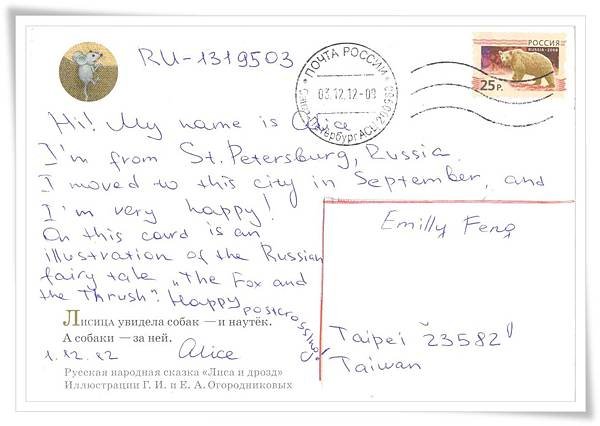 RU-1319503
ПОЧТА РОССИИ
03.12.12-08
РОССИЯ
RUSSIA • 2008
25 Р.
Hi! My name is Alice.
I'm from St. Petersburg, Russia.
I moved to this city in September, and
I'm very happy!
On this card is an
illustration of the Russian
fairy tale „The Fox and
the Thrush". Happy postcrossing!
Emilly Feng
Taipei 23582
Taiwan
Лисица увидела собак — и наутёк.
А собаки — за ней.
1.12.12 Alice
Русская народная сказка «Лиса и дрозд»
Иллюстрации Г. И. и Е. А. Огородниковых